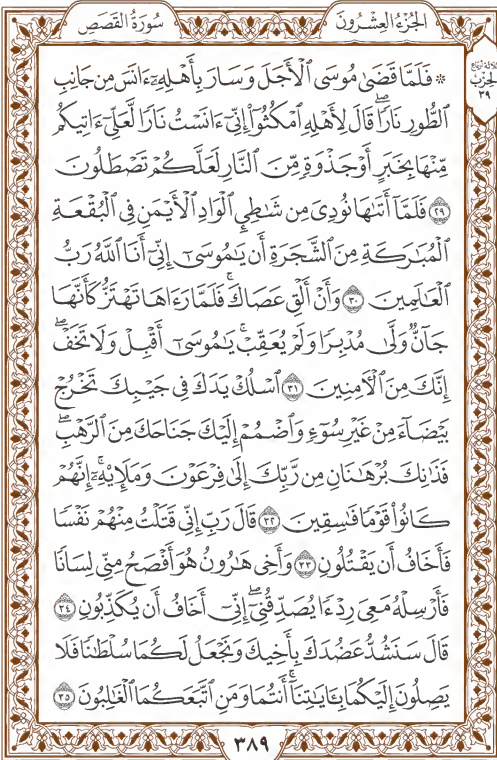 الجُزْءُ العِشْرُونَ
سُورَةُ القَصَصِ
ثلاثة أرباع
الحزب
٣٩
۞ فَلَمَّا قَضَىٰ مُوسَى ٱلْأَجَلَ وَسَارَ بِأَهْلِهِۦٓ ءَانَسَ مِن جَانِبِ
ٱلطُّورِ نَارًاۖ قَالَ لِأَهْلِهِ ٱمْكُثُوٓا۟ إِنِّىٓ ءَانَسْتُ نَارًا لَّعَلِّىٓ ءَاتِيكُم
مِّنْهَا بِخَبَرٍ أَوْ جَذْوَةٍ مِّنَ ٱلنَّارِ لَعَلَّكُمْ تَصْطَلُونَ
٢٩ فَلَمَّآ أَتَىٰهَا نُودِىَ مِن شَـٰطِئِ ٱلْوَادِ ٱلْأَيْمَنِ فِى ٱلْبُقْعَةِ
ٱلْمُبَـٰرَكَةِ مِنَ ٱلشَّجَرَةِ أَن يَـٰمُوسَىٰٓ إِنِّىٓ أَنَا ٱللَّهُ رَبُّ
ٱلْعَـٰلَمِينَ ٣٠ وَأَنْ أَلْقِ عَصَاكَۖ فَلَمَّا رَءَاهَا تَهْتَزُّ كَأَنَّهَا
جَآنٌّ وَلَّىٰ مُدْبِرًا وَلَمْ يُعَقِّبْۚ يَـٰمُوسَىٰٓ أَقْبِلْ وَلَا تَخَفْۖ
إِنَّكَ مِنَ ٱلْـَٔامِنِينَ ٣١ ٱسْلُكْ يَدَكَ فِى جَيْبِكَ تَخْرُجْ
بَيْضَآءَ مِنْ غَيْرِ سُوٓءٍ وَٱضْمُمْ إِلَيْكَ جَنَاحَكَ مِنَ ٱلرَّهْبِۖ
فَذَٰنِكَ بُرْهَـٰنَانِ مِن رَّبِّكَ إِلَىٰ فِرْعَوْنَ وَمَلَإِي۟هِۦٓۚ إِنَّهُمْ
كَانُوا۟ قَوْمًا فَـٰسِقِينَ ٣٢ قَالَ رَبِّ إِنِّى قَتَلْتُ مِنْهُمْ نَفْسًا
فَأَخَافُ أَن يَقْتُلُونِ ٣٣ وَأَخِى هَـٰرُونُ هُوَ أَفْصَحُ مِنِّى لِسَانًا
فَأَرْسِلْهُ مَعِىَ رِدْءًا يُصَدِّقُنِىٓۖ إِنِّىٓ أَخَافُ أَن يُكَذِّبُونِ ٣٤
قَالَ سَنَشُدُّ عَضُدَكَ بِأَخِيكَ وَنَجْعَلُ لَكُمَا سُلْطَـٰنًا فَلَا
يَصِلُونَ إِلَيْكُمَا بِـَٔايَـٰتِنَآۚ أَنتُمَا وَمَنِ ٱتَّبَعَكُمَا ٱلْغَـٰلِبُونَ ٣٥
٣٨٩